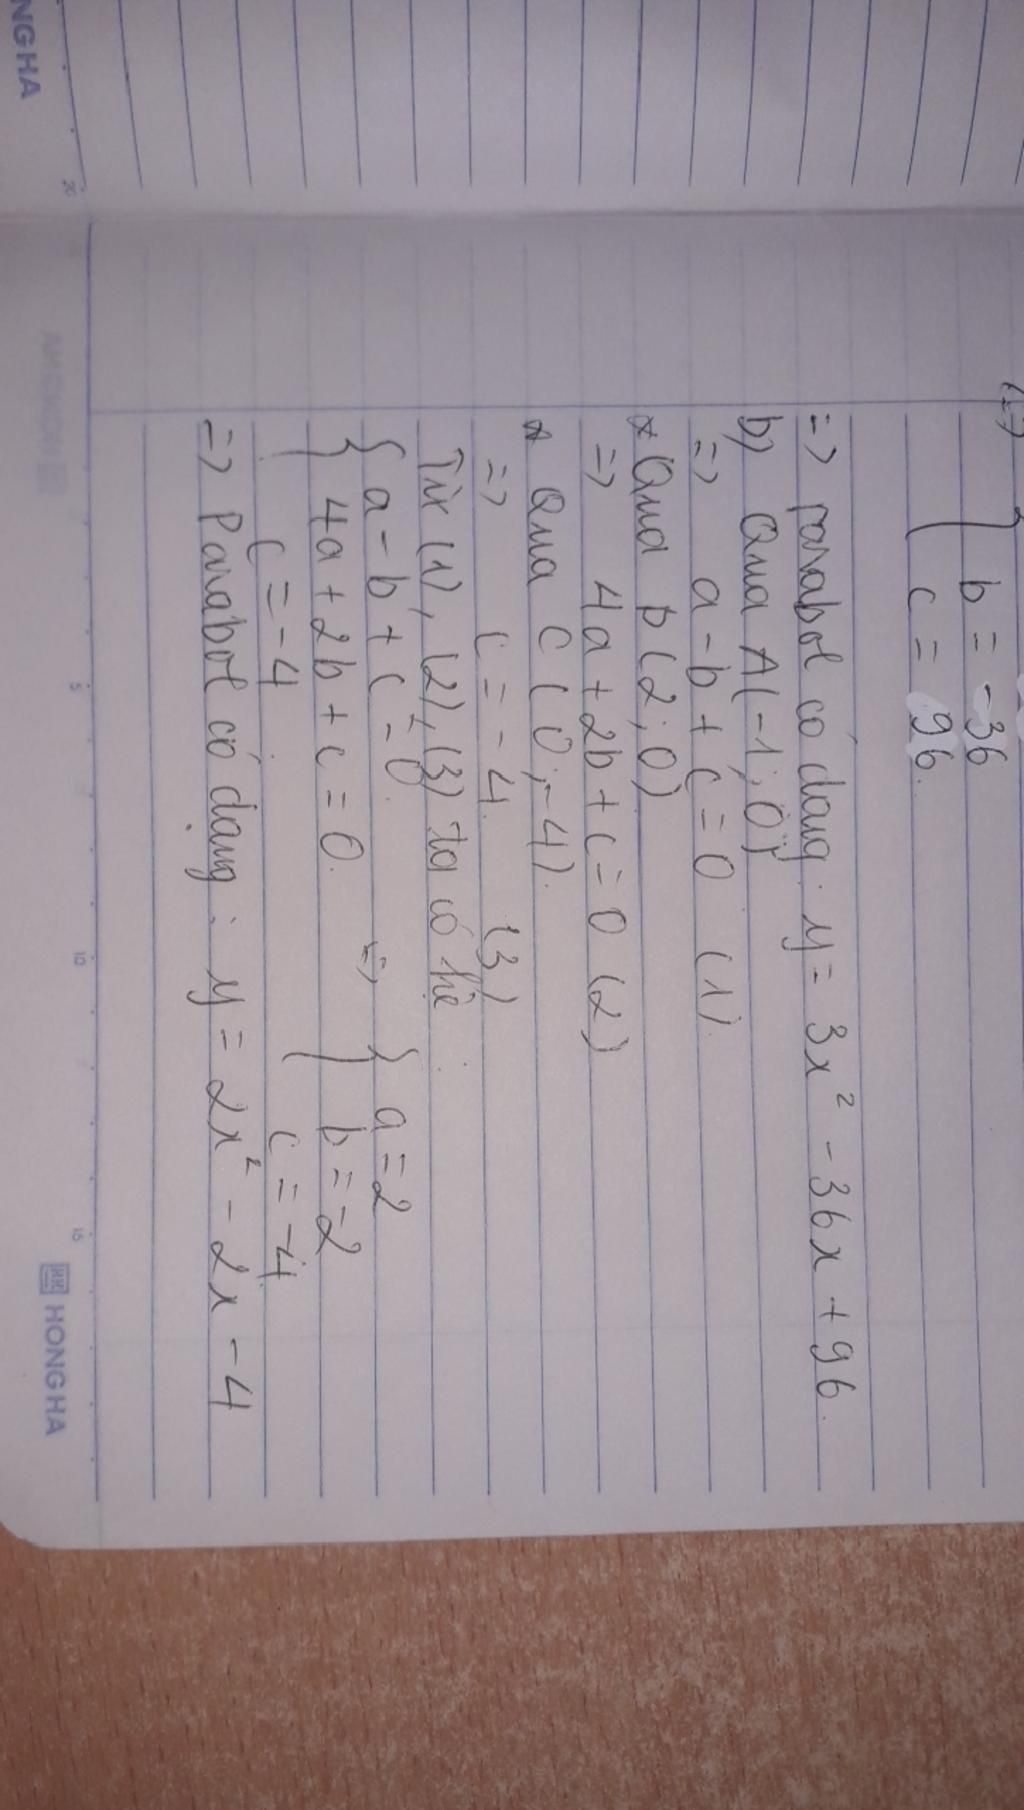 b = -36
c = 96.
=> parabol có dạng. y = 3x² - 36x + 96.
b) Qua A(-1; 0)
=> a - b + c = 0 (1).
* Qua B(2; 0)
=> 4a + 2b + c = 0 (2)
* Qua C(0; -4).
=> c = -4. (3)
Từ (1), (2), (3) ta có hệ:
{ a - b + c = 0. { a = 2
4a + 2b + c = 0. => b = -2
c = -4 c = -4
=> Parabol có dạng: y = 2x² - 2x - 4
NGHA
20
5
10
15
HONG HA